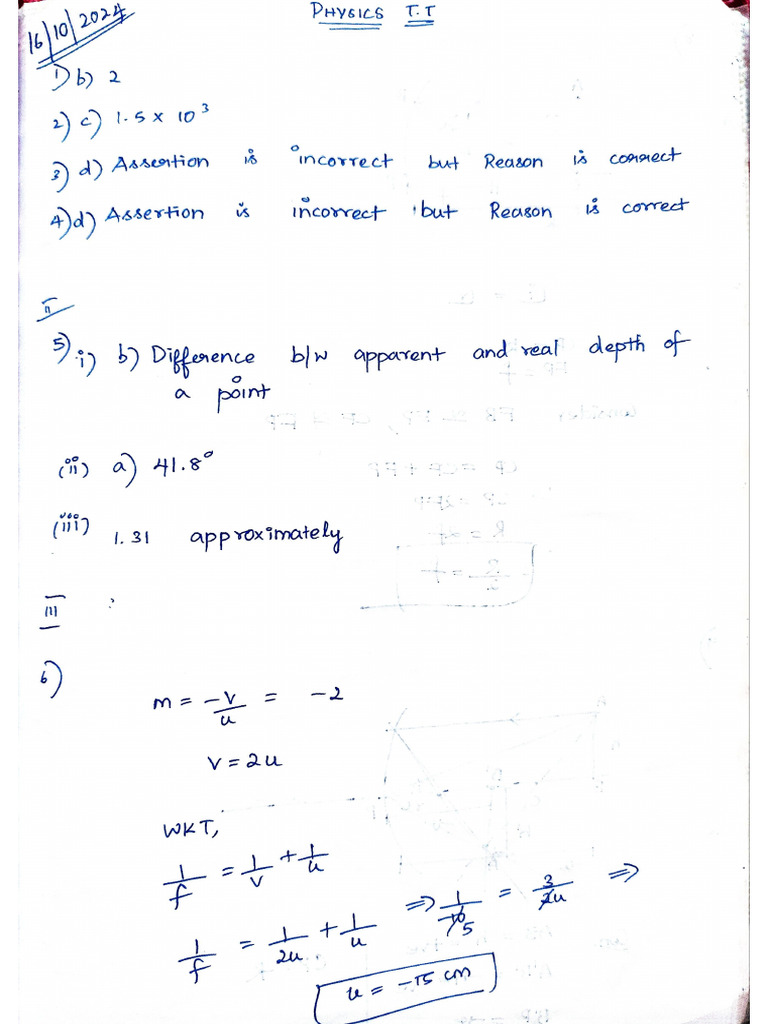 16/10/2024
PHYSICS T.T
1) b) 2
2) c) 1.5 × 10³
3) d) Assertion is incorrect but Reason is correct
4) d) Assertion is incorrect but Reason is correct
II
5) i) b) Difference b/w apparent and real depth of
a point
(ii) a) 41.8°
(iii) 1.31 approximately
III
6)
m = -v/u = -2
v = 2u
WKT,
1/f = 1/v + 1/u
1/f = 1/2u + 1/u ⇒ 1/-10 5 = 3/2u ⇒
u = -15 cm